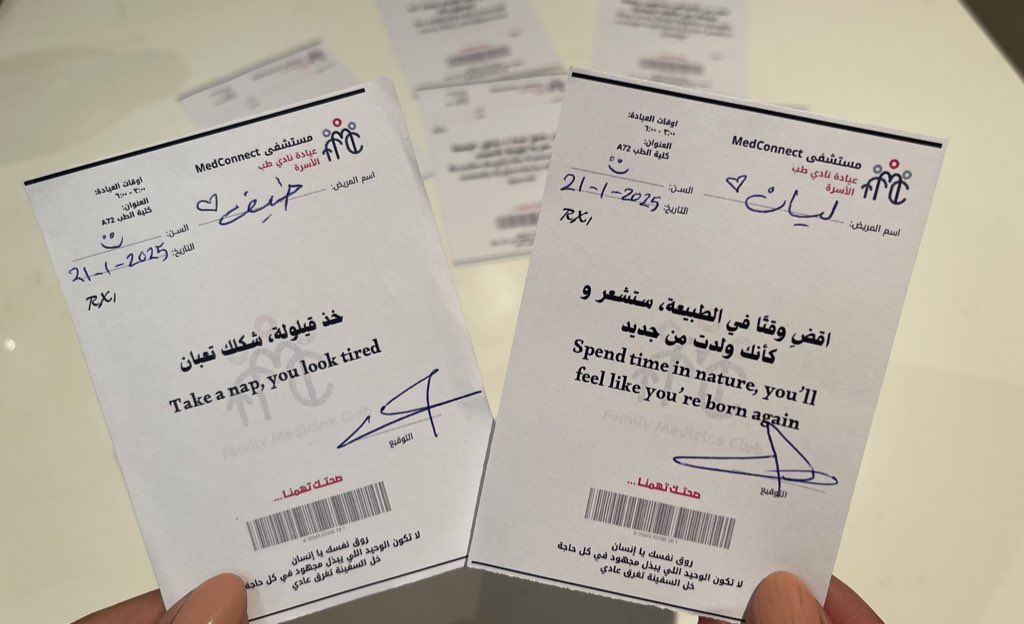 مستشفى MedConnect
عيادة نادي طب
الأسرة
اوقات العيادة:
٣:٠٠ - ٦:٠٠
العنوان:
كلية الطب A72
اسم المريض: طيف
السن:
التاريخ: 21-1-2025
RX1
خذ قيلولة، شكلك تعبان
Take a nap, you look tired
Family Medicine Club
التوقيع
صحتك تهمنا...
روق نفسك يا إنسان
لا تكون الوحيد اللي يبذل مجهود في كل حاجة
خل السفينة تغرق عادي
مستشفى MedConnect
عيادة نادي طب
الأسرة
اوقات العيادة:
٣:٠٠ - ٦:٠٠
العنوان:
كلية الطب A72
اسم المريض: ليان
السن:
التاريخ: 21-1-2025
RX1
اقضِ وقتًا في الطبيعة، ستشعر و
كأنك ولدت من جديد
Spend time in nature, you'll
feel like you're born again
Family Medicine Club
التوقيع
صحتك تهمنا...
روق نفسك يا إنسان
لا تكون الوحيد اللي يبذل مجهود في كل حاجة
خل السفينة تغرق عادي